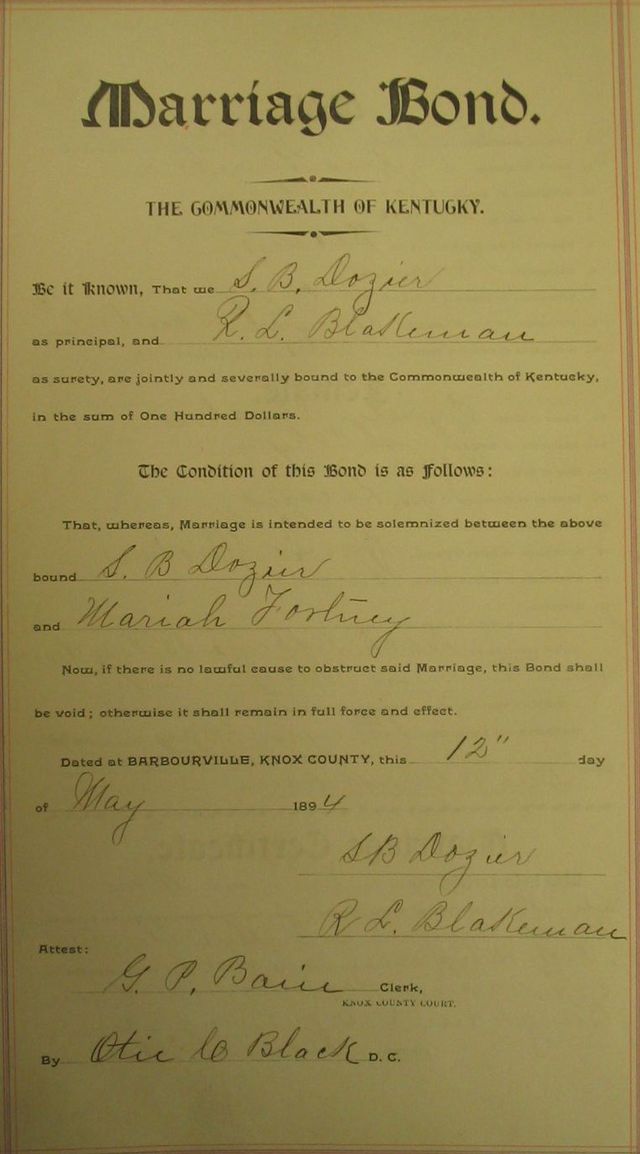 Marriage Bond.
THE COMMONWEALTH OF KENTUCKY.
Be it Known, That we S. B. Dozier
as principal, and R. L. Blakeman
as surety, are jointly and severally bound to the Commonwealth of Kentucky,
in the sum of One Hundred Dollars.
The Condition of this Bond is as Follows:
That, whereas, Marriage is intended to be solemnized between the above
bound S. B Dozier
and Mariah Fortney
Now, if there is no lawful cause to obstruct said Marriage, this Bond shall
be void; otherwise it shall remain in full force and effect.
Dated at BARBOURVILLE, KNOX COUNTY, this 12" day
of May 1894
S B Dozier
R L. Blakeman
Attest:
G. P. Bain Clerk,
KNOX COUNTY COURT.
By Otie C Black D. C.